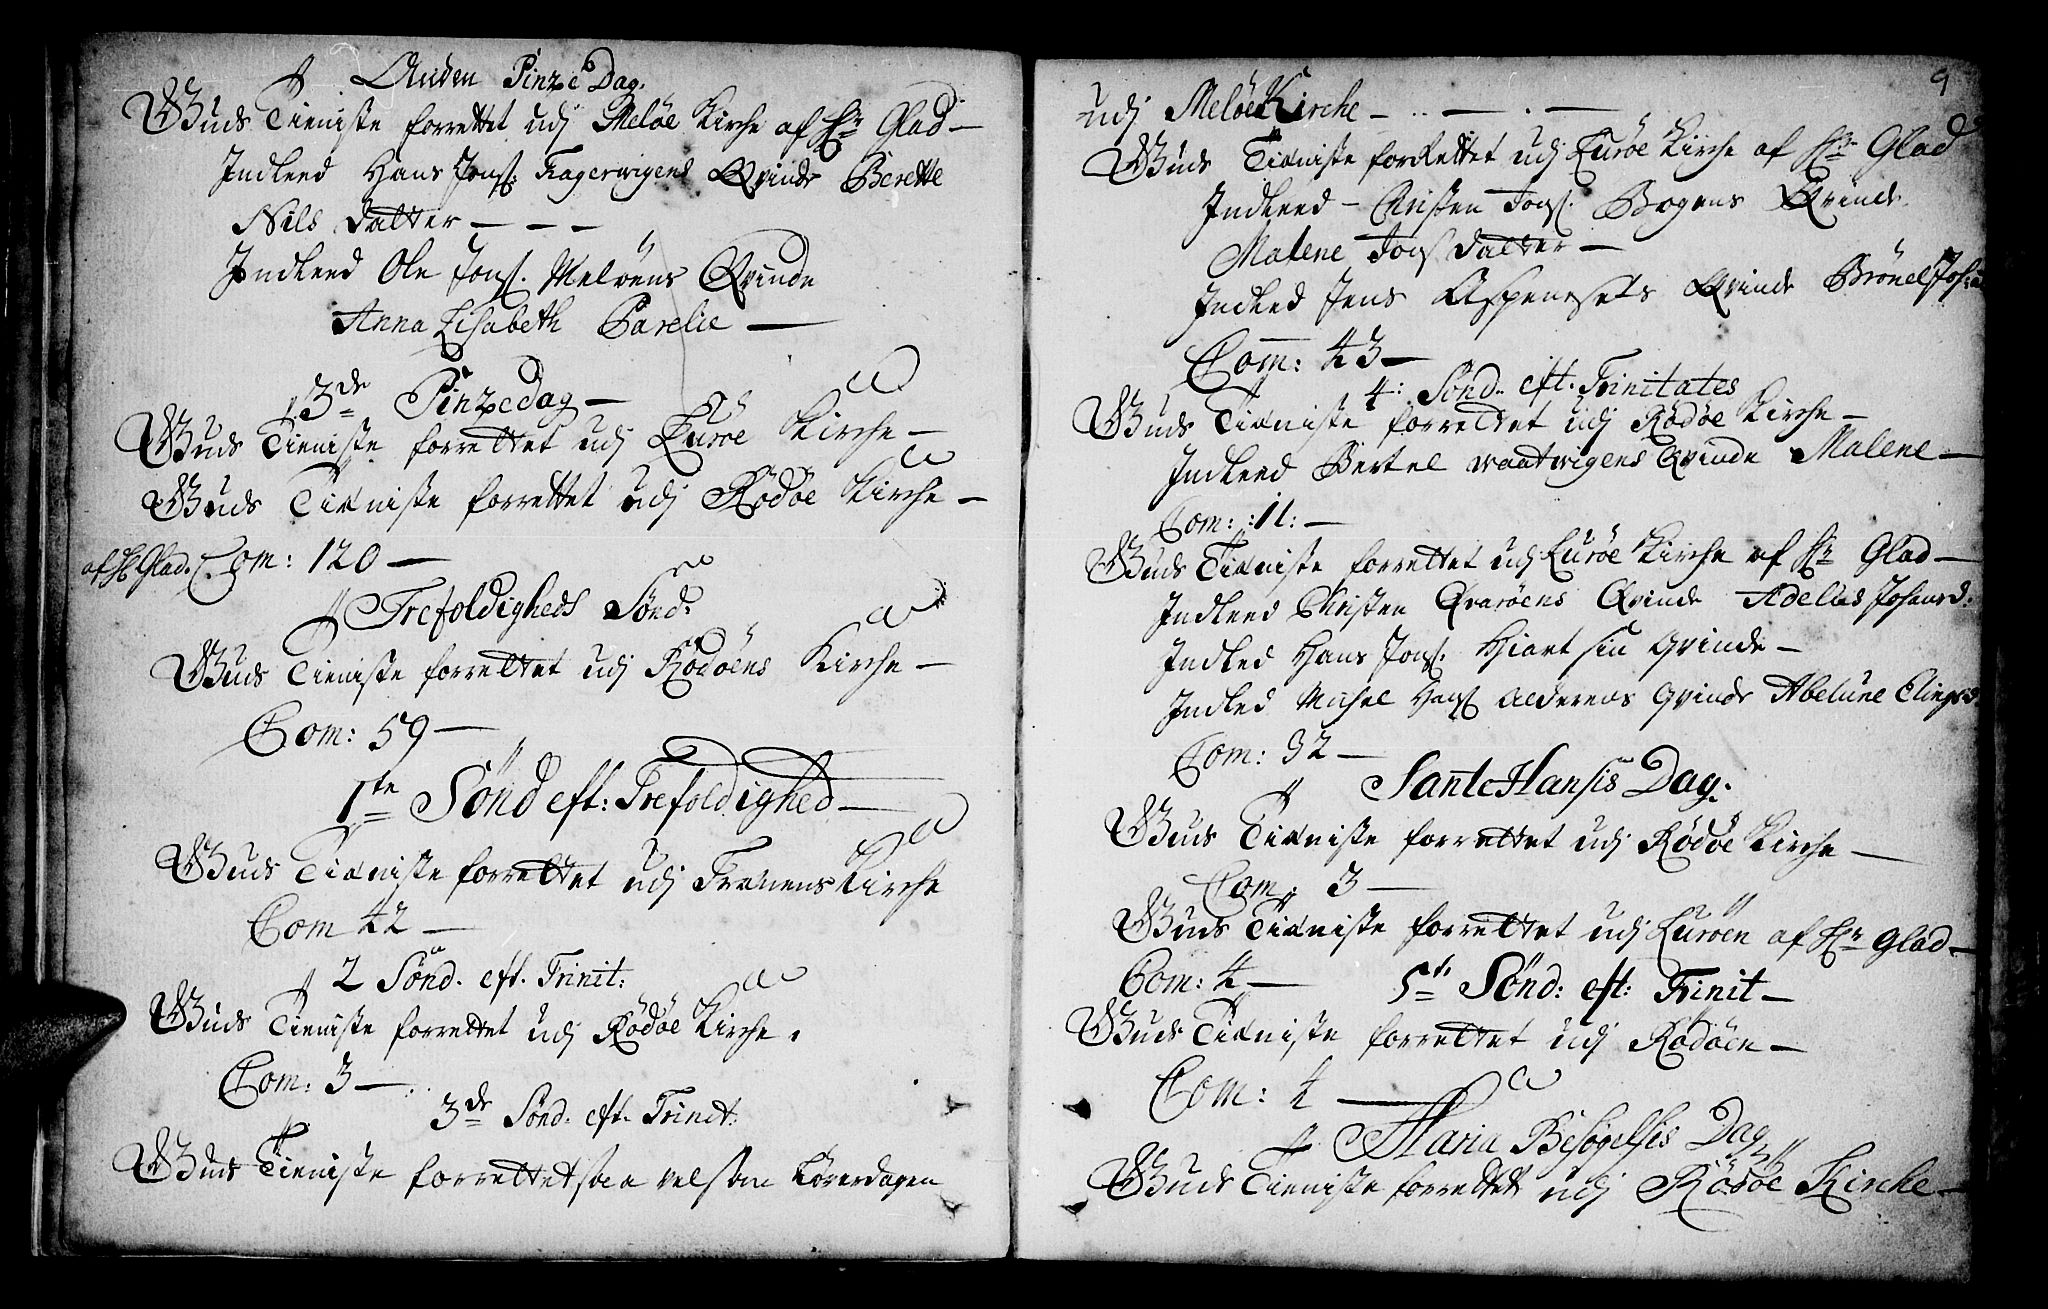 Anden Pinze Dag.
Guds Tieniste forrettet udj Meløe Kirche af Hr Glad —
Indleed Hans Jons. Fagerwigens Qvinde Berette
Nils Datter — — —
Indleed Ole Jons. Meløens Qvinde
Anna Lisabeth Parelie —
3de Pinzedag —
Guds Tieniste forrettet udj Lurøe Kirche —
Guds Tieniste forrettet udj Rødøe Kirche —
af Hr Glad. Com: 120 —
Trefoldigheds Sønd:
Guds Tieniste forrettet udj Rødøens Kirche —
Com: 59 —
1te Sønd eft: Trefoldighed —
Guds Tieniste forrettet udj Trænens Kirche
Com 42 —
2 Sønd. eft. Trinit:
Guds Tieniste forrettet udj Rødøe Kirche.
Com: 3 —
3de Sønd. eft. Trinit:
Guds Tieniste forrettet saa vel som Løverdagen
9
udj Meløe Kirche — . — . —
Guds Tieniste forrettet udj Lurøe Kirche af Hr Glad
Indleed — Christen Jons. Bogens Qvinde
Malene Jons Datter —
Indleed Jens Aspenesets Qvinde Brönel
Com: 43 —
4: Sønd. eft. Trinitates
Guds Tieniste forrettet udj Rødøe Kirche —
Indleed Bertel Waatwigens Qvinde Malene —
Com: :11: —
Guds Tieniste forrettet udj Lurøe Kirche af Hr Glad —
Indleed Christen Qvarøens Qvinde Adelus Johansd:
Indled Hans Jons. Hiort sin Qvinde —
Indled Michel Hans Alderens Qvinde Abelune
Com: 32 —
Sante Hansis Dag.
Guds Tieniste forrettet udj Rødøe Kirche —
Com: 3 —
Guds Tieniste forrettet udj Lurøen af Hr Glad —
Com: 4 —
5te Sønd: eft: Trinit —
Guds Tieniste forrettet udj Rødøen —
Com: 4 —
Maria Besøgelsis Dag
Guds Tieniste forrettet udj Rødøe Kirche —